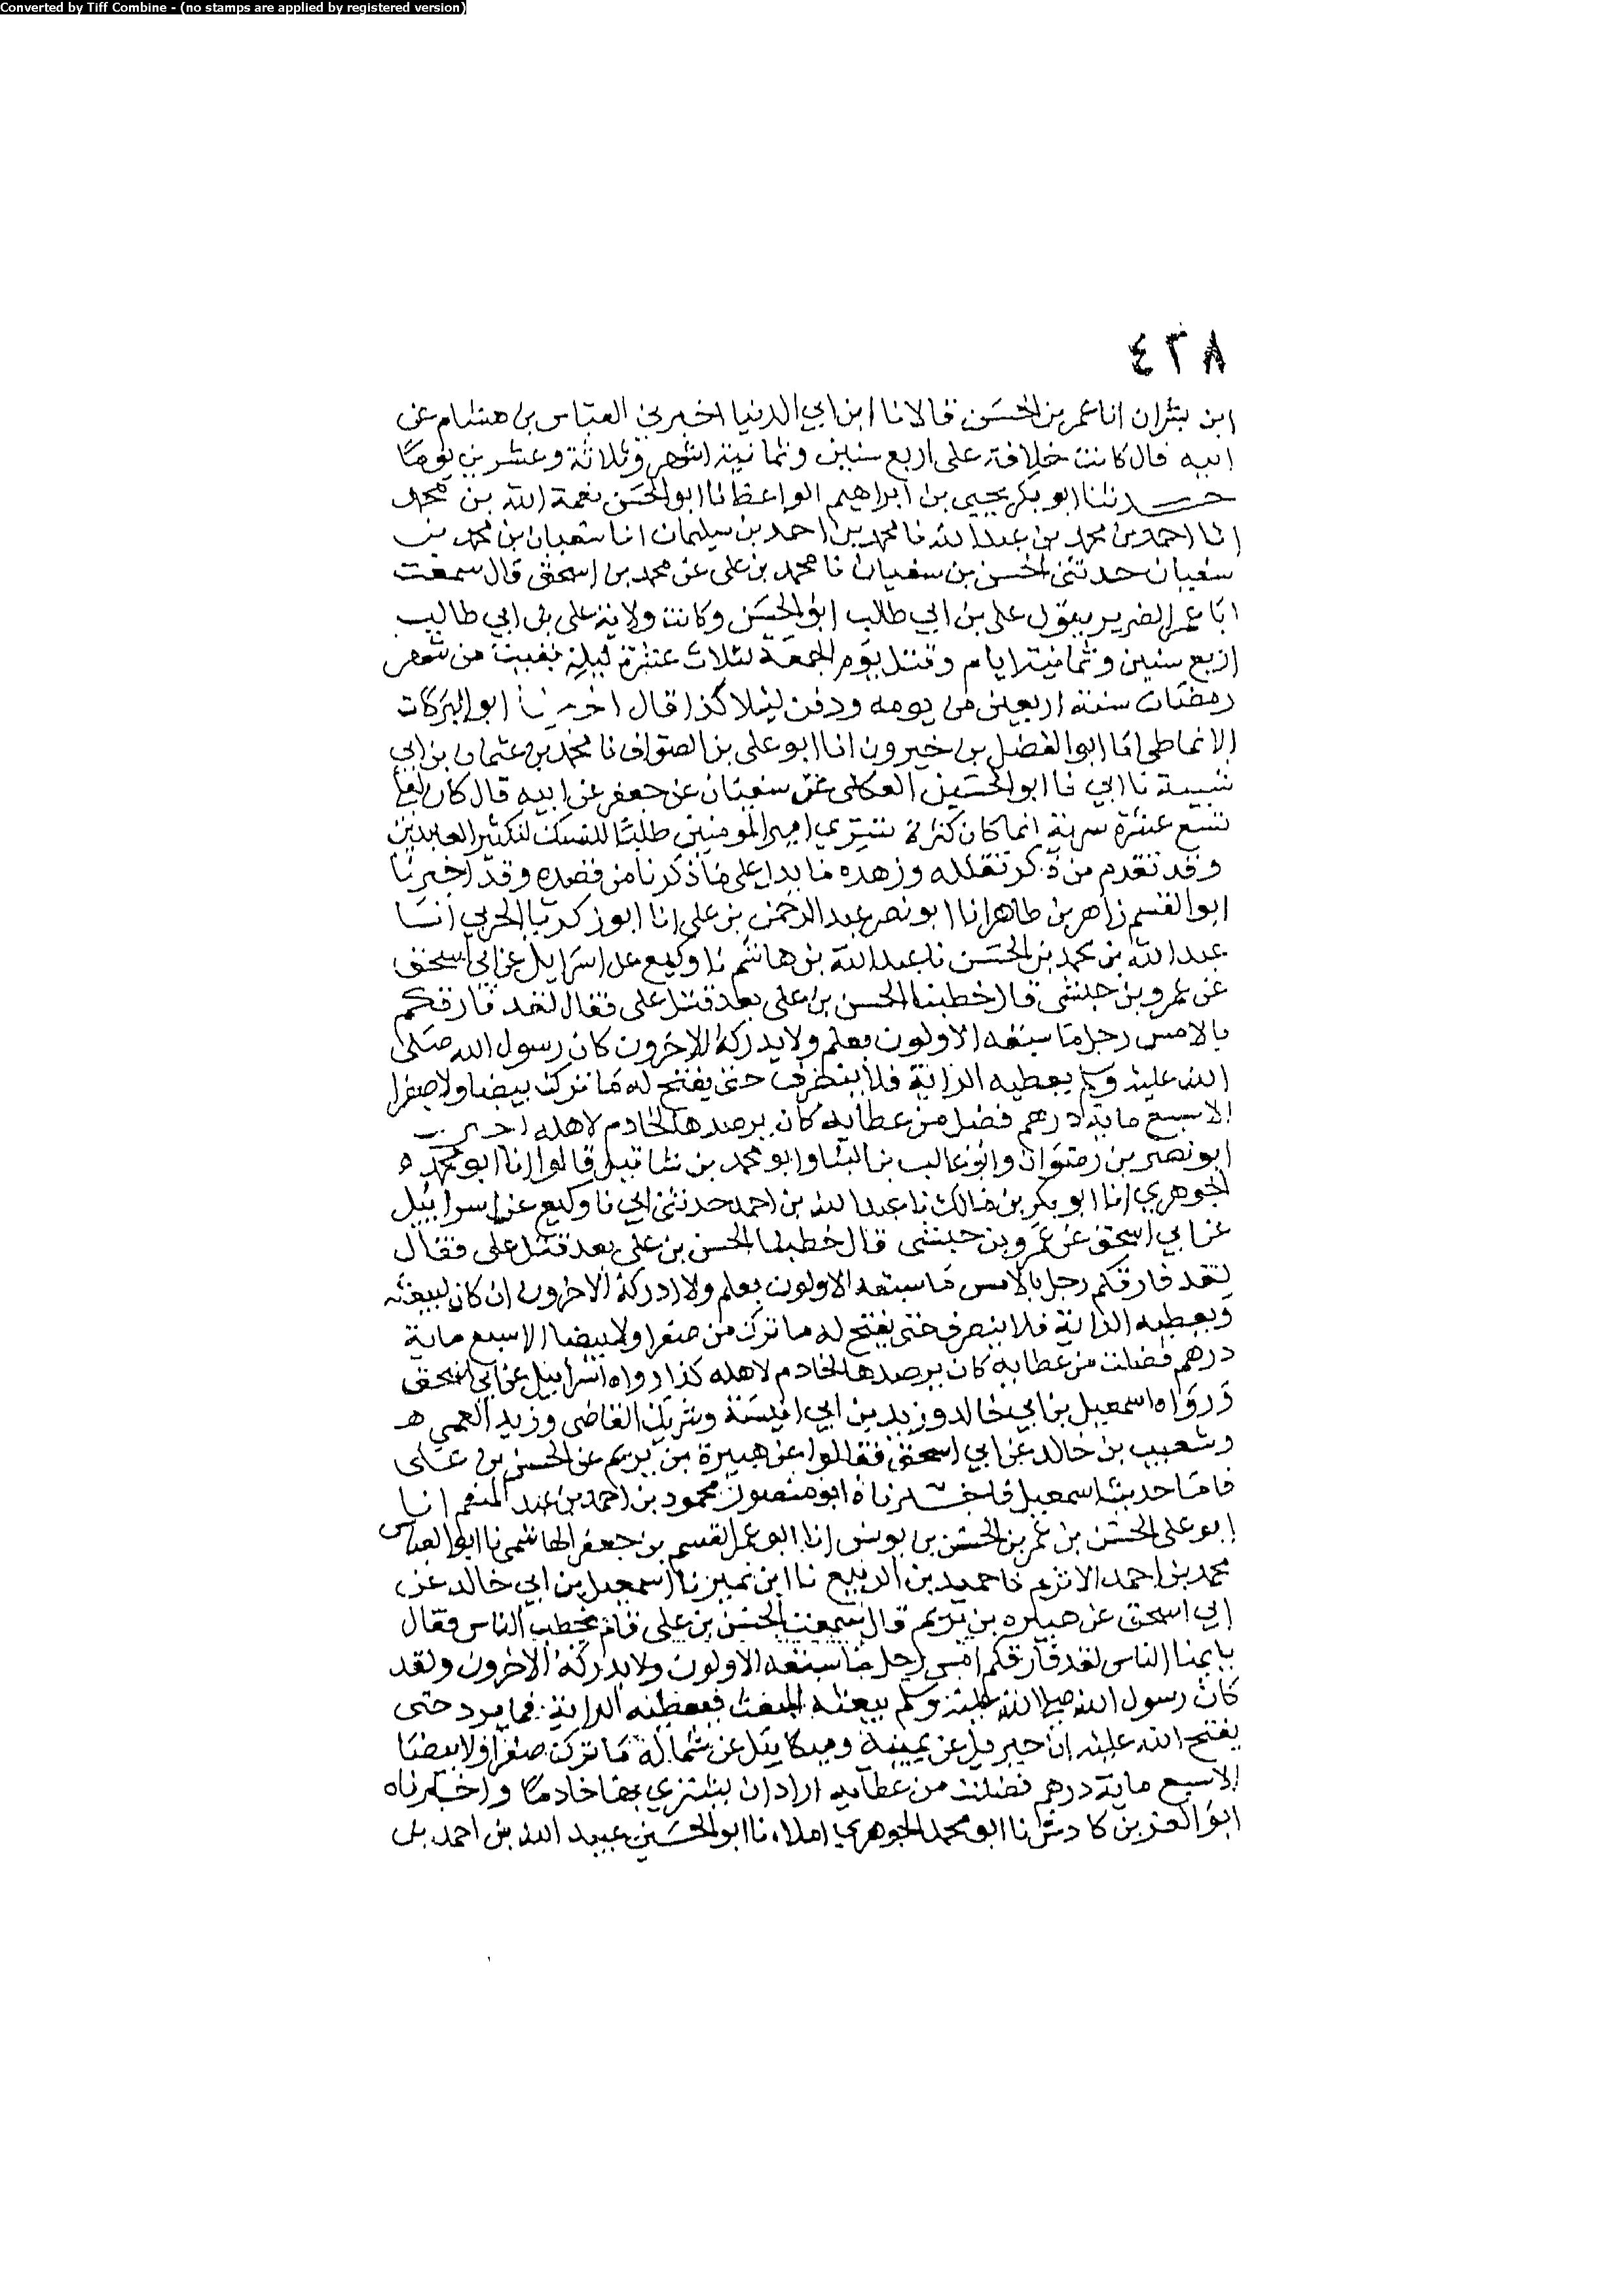 Converted by Tiff Combine - (no stamps are applied by registered version)
٤٣٨
ابن بشران انا عمر بن الحسن قالا نا ابن ابي الدنيا اخبرني العباس بن هشام عن
ابيه قال كانت خلافة على اربع سنين وثمانية اشهر وثلاثة وعشرين يوما
حدثنا ابو بكر يحيى بن ابراهيم الواعظ انا ابو الحسن نعمة الله بن محمد
انا احمد بن محمد بن عبد الله نا محمد بن احمد بن سليمان انا سفيان بن محمد بن
سفيان حدثني الحسن بن سفيان نا محمد بن على عن محمد بن اسحق قال سمعت
ابا عمر الضرير يقول على بن ابي طالب ابو الحسن وكانت ولاية على بن ابي طالب
اربع سنين وثمانية ايام وقتل يوم الجمعة لثلاث عشرة ليلة بقيت من شهر
رمضان سنة اربعين من يومه ودفن ليلا كذا قال اخبرنا ابو البركات
الانماطي انا ابو الفضل بن خيرون انا ابو على بن الصواف نا محمد بن عثمان بن ابي
شيبة نا ابي نا ابو الحسين العكلى عن سفيان عن جعفر عن ابيه قال كان لعلي
تسع عشرة سرية انما كان كثرة تسري امير المومنين طلبا للنسك لتكثير العابدين
وقد تقدم من ذكر تقلله وزهده ما يدل على ما ذكرنا من قصده وقد اخبرنا
ابو القسم زاهر بن طاهر انا ابو نصر عبد الرحمن بن على انا ابو زكريا الحربي انا
عبد الله بن محمد بن الحسن نا عبد الله بن هاشم نا وكيع عن اسرايل عن ابي اسحق
عن عمرو بن حبشى قال خطبنا الحسن بن على بعد قتل على فقال لقد فارقكم
بالامس رجل ما سبقه الاولون بعلم ولا يدركه الاخرون كان رسول الله صلى
الله عليه وسلم يعطيه الراية فلا ينصرف حتى يفتح له ما ترك بيضا ولا صفرا
الا سبع ماية درهم فضل من عطايه كان يرصدها لخادم لاهله اخبرنا
ابو نصر بن رضوان وابو غالب بن البنا وابو محمد بن شاتيل قالوا انا ابو محمد ه
الجوهري انا ابو بكر بن مالك نا عبد الله بن احمد حدثني ابي نا وكيع عن اسراييل
عن ابي اسحق عن عمرو بن حبشى قال خطبنا الحسن بن على بعد قتل على فقال
لقد فارقكم رجل بالامس ما سبقه الاولون بعلم ولا ادركه الاخرون ان كان ليبعثه
ويعطيه الراية فلا ينصرف حتى يفتح له ما ترك من صفرا ولا بيضا الا سبع ماية
درهم فضلت من عطايه كان يرصدها لخادم لاهله كذا رواه اسراييل عن ابي اسحق
ورواه اسمعيل بن ابي خالد وزيد بن ابي انيسة وشريك القاضى وزيد العمي ه
وشعيب بن خالد عن ابي اسحق فقالوا عن هبيرة بن يريم عن الحسن بن على
فاما حديث اسمعيل فاخبرناه ابو منصور محمود بن احمد بن عبد المنعم انا
ابو على الحسن بن عمر بن الحسن بن يونس انا ابو عمر القسم بن جعفر الهاشمي نا ابو العباس
محمد بن احمد الاثرم نا حميد بن الربيع نا ابن نمير نا اسمعيل بن ابي خالد عن
ابي اسحق عن هبيره بن يريم قال سمعت الحسن بن على قام يخطب الناس فقال
يا يها الناس لقد فارقكم امس رجل ما سبقه الاولون ولا يدركه الاخرون ولقد
كان رسول الله صلى الله عليه وسلم يبعثه البعث فيعطيه الراية فما يرد حتى
يفتح الله عليه ان جبريل عن يمينه وميكاييل عن شماله ما ترك صفرا ولا بيضا
الا سبع ماية درهم فضلت من عطايه اراد ان يشتري بها خادما واخبرناه
ابو العز بن كادش انا ابو محمد الجوهري املا نا ابو الحسين عبيد الله بن احمد بن